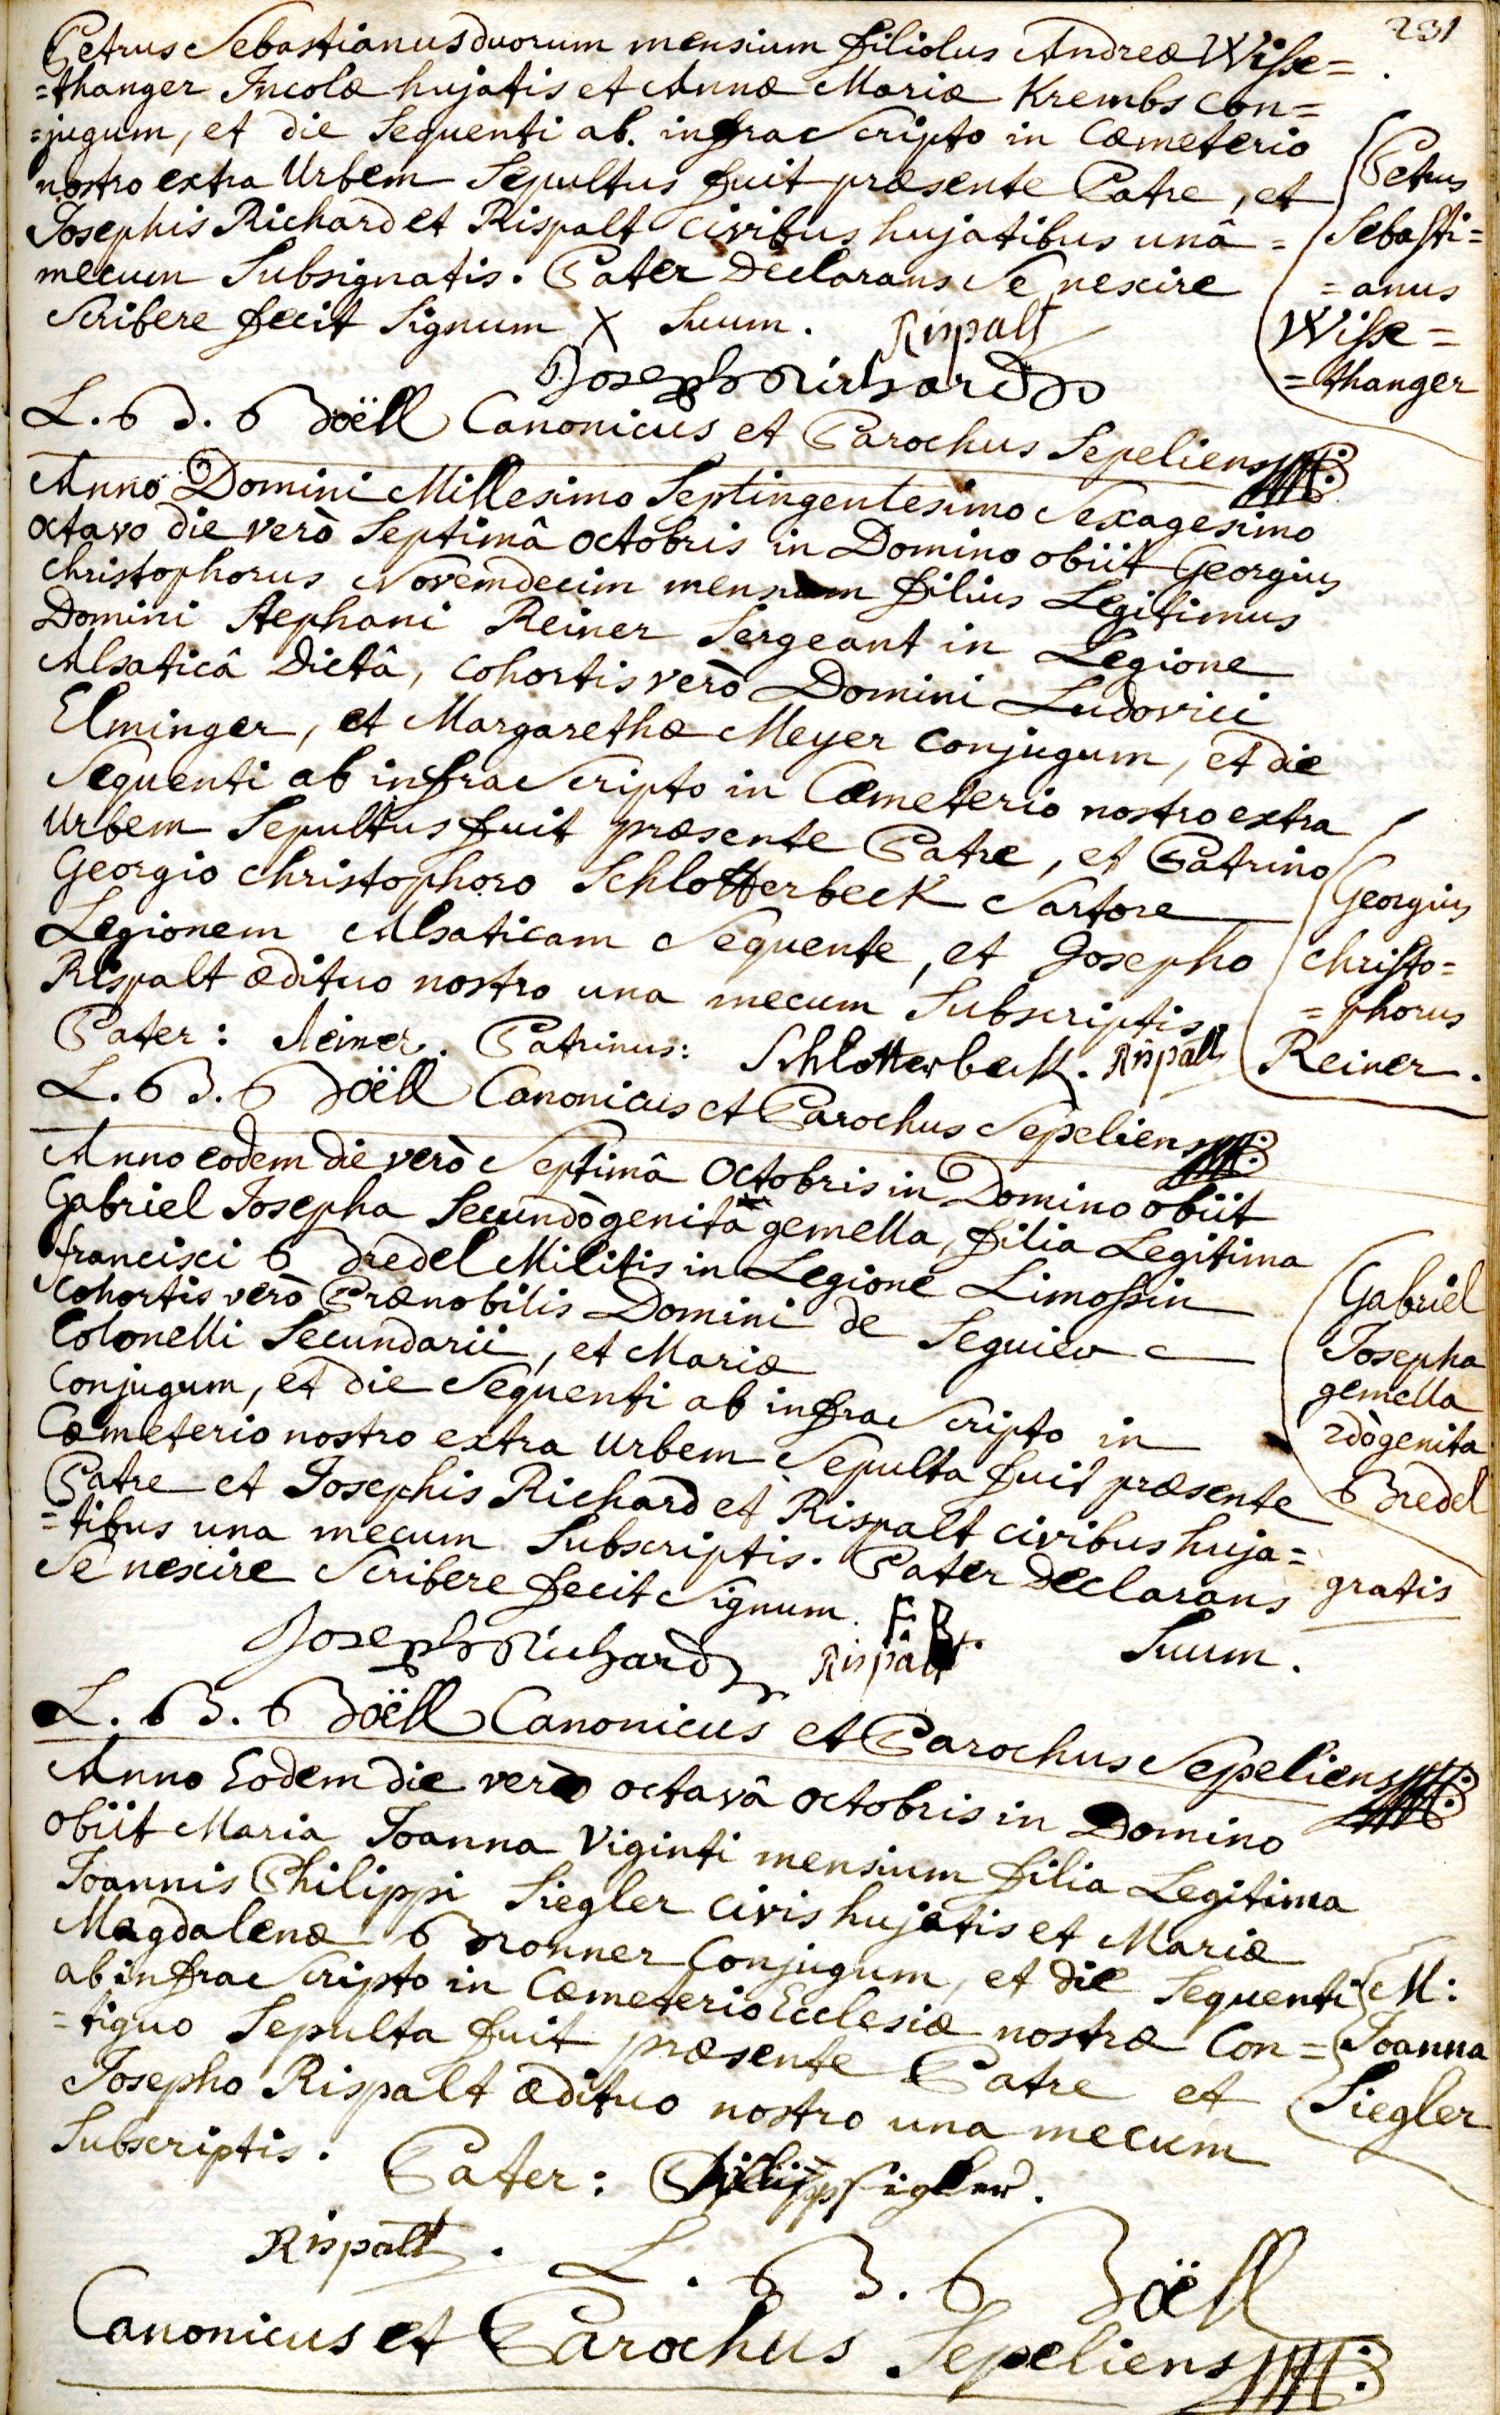 231
Petrus Sebastianus duorum mensium filiolus Andreæ Wisse=
=thanger Incolæ hujatis et Annæ Mariæ Krembs con=
=jugum, et die sequenti ab. infrascripto in Cœmeterio
nostro extra Urbem sepultus fuit præsente Patre, et
Josephis Richard et Rispalt civibus hujatibus unâ =
mecum subsignatis. Pater declarans se nescire
scribere fecit signum X suum. Rispalt
Joseph Richard
L. B. Boëll Canonicus et Parochus sepeliens
Petrus
Sebasti=
=anus
Wisse=
=thanger
Anno Domini Millesimo septingentesimo sexagesimo
octavo die verò septimâ octobris in Domino obiit Georgius
christophorus Novemdecim mensium filius Legitimus
Domini stephani Reiner sergeant in Legione
Alsaticâ dictâ, cohortis verò Domini Ludovici
Elminger, et Margarethæ Meyer conjugum, et die
sequenti ab infrascripto in Cœmeterio nostro extra
Urbem sepultus fuit præsente Patre, et Patrino
Georgio christophoro Schlotterbeck sartore
Legionem Alsaticam sequente, et Josepho
Rispalt ædituo nostro una mecum subscriptis
Pater: Reiner. Patrinus: Schlotterbeck. Rispalt
L. B. Boëll Canonicus et Parochus sepeliens
Georgius
christo=
=phorus
Reiner.
Anno eodem die verò septimâ octobris in Domino obiit
Gabriel Josepha secundògenita gemella, filia Legitima
francisci Bredel Militis in Legione Limossin
cohortis verò Prænobilis Domini de Seguier
Colonelli secundarii, et Mariæ
Conjugum, et die sequenti ab infrascripto in
Cœmeterio nostro extra Urbem sepulta fuit præsente
Patre et Josephis Richard et Rispalt civibus huja=
=tibus una mecum subscriptis. Pater declarans
se nescire scribere fecit signum. F. B. suum.
Joseph Richard Rispalt
L. B. Boëll Canonicus et Parochus sepeliens
Gabriel
Josepha
gemella
2dògenita
Bredel
gratis
Anno Eodem die verò octavâ octobris in Domino
obiit Maria Joanna Viginti mensium filia Legitima
Joannis Philippi Siegler civis hujatis et Mariæ
Magdalenæ Bronner Conjugum, et die sequenti
ab infrascripto in Cœmeterio Ecclesiæ nostræ con=
=tiguo sepulta fuit præsente Patre et
Josepho Rispalt ædituo nostro una mecum
subscriptis. Pater: Philipp sigler.
Rispalt. L. B. Boëll
Canonicus et Parochus sepeliens
M:
Joanna
Siegler